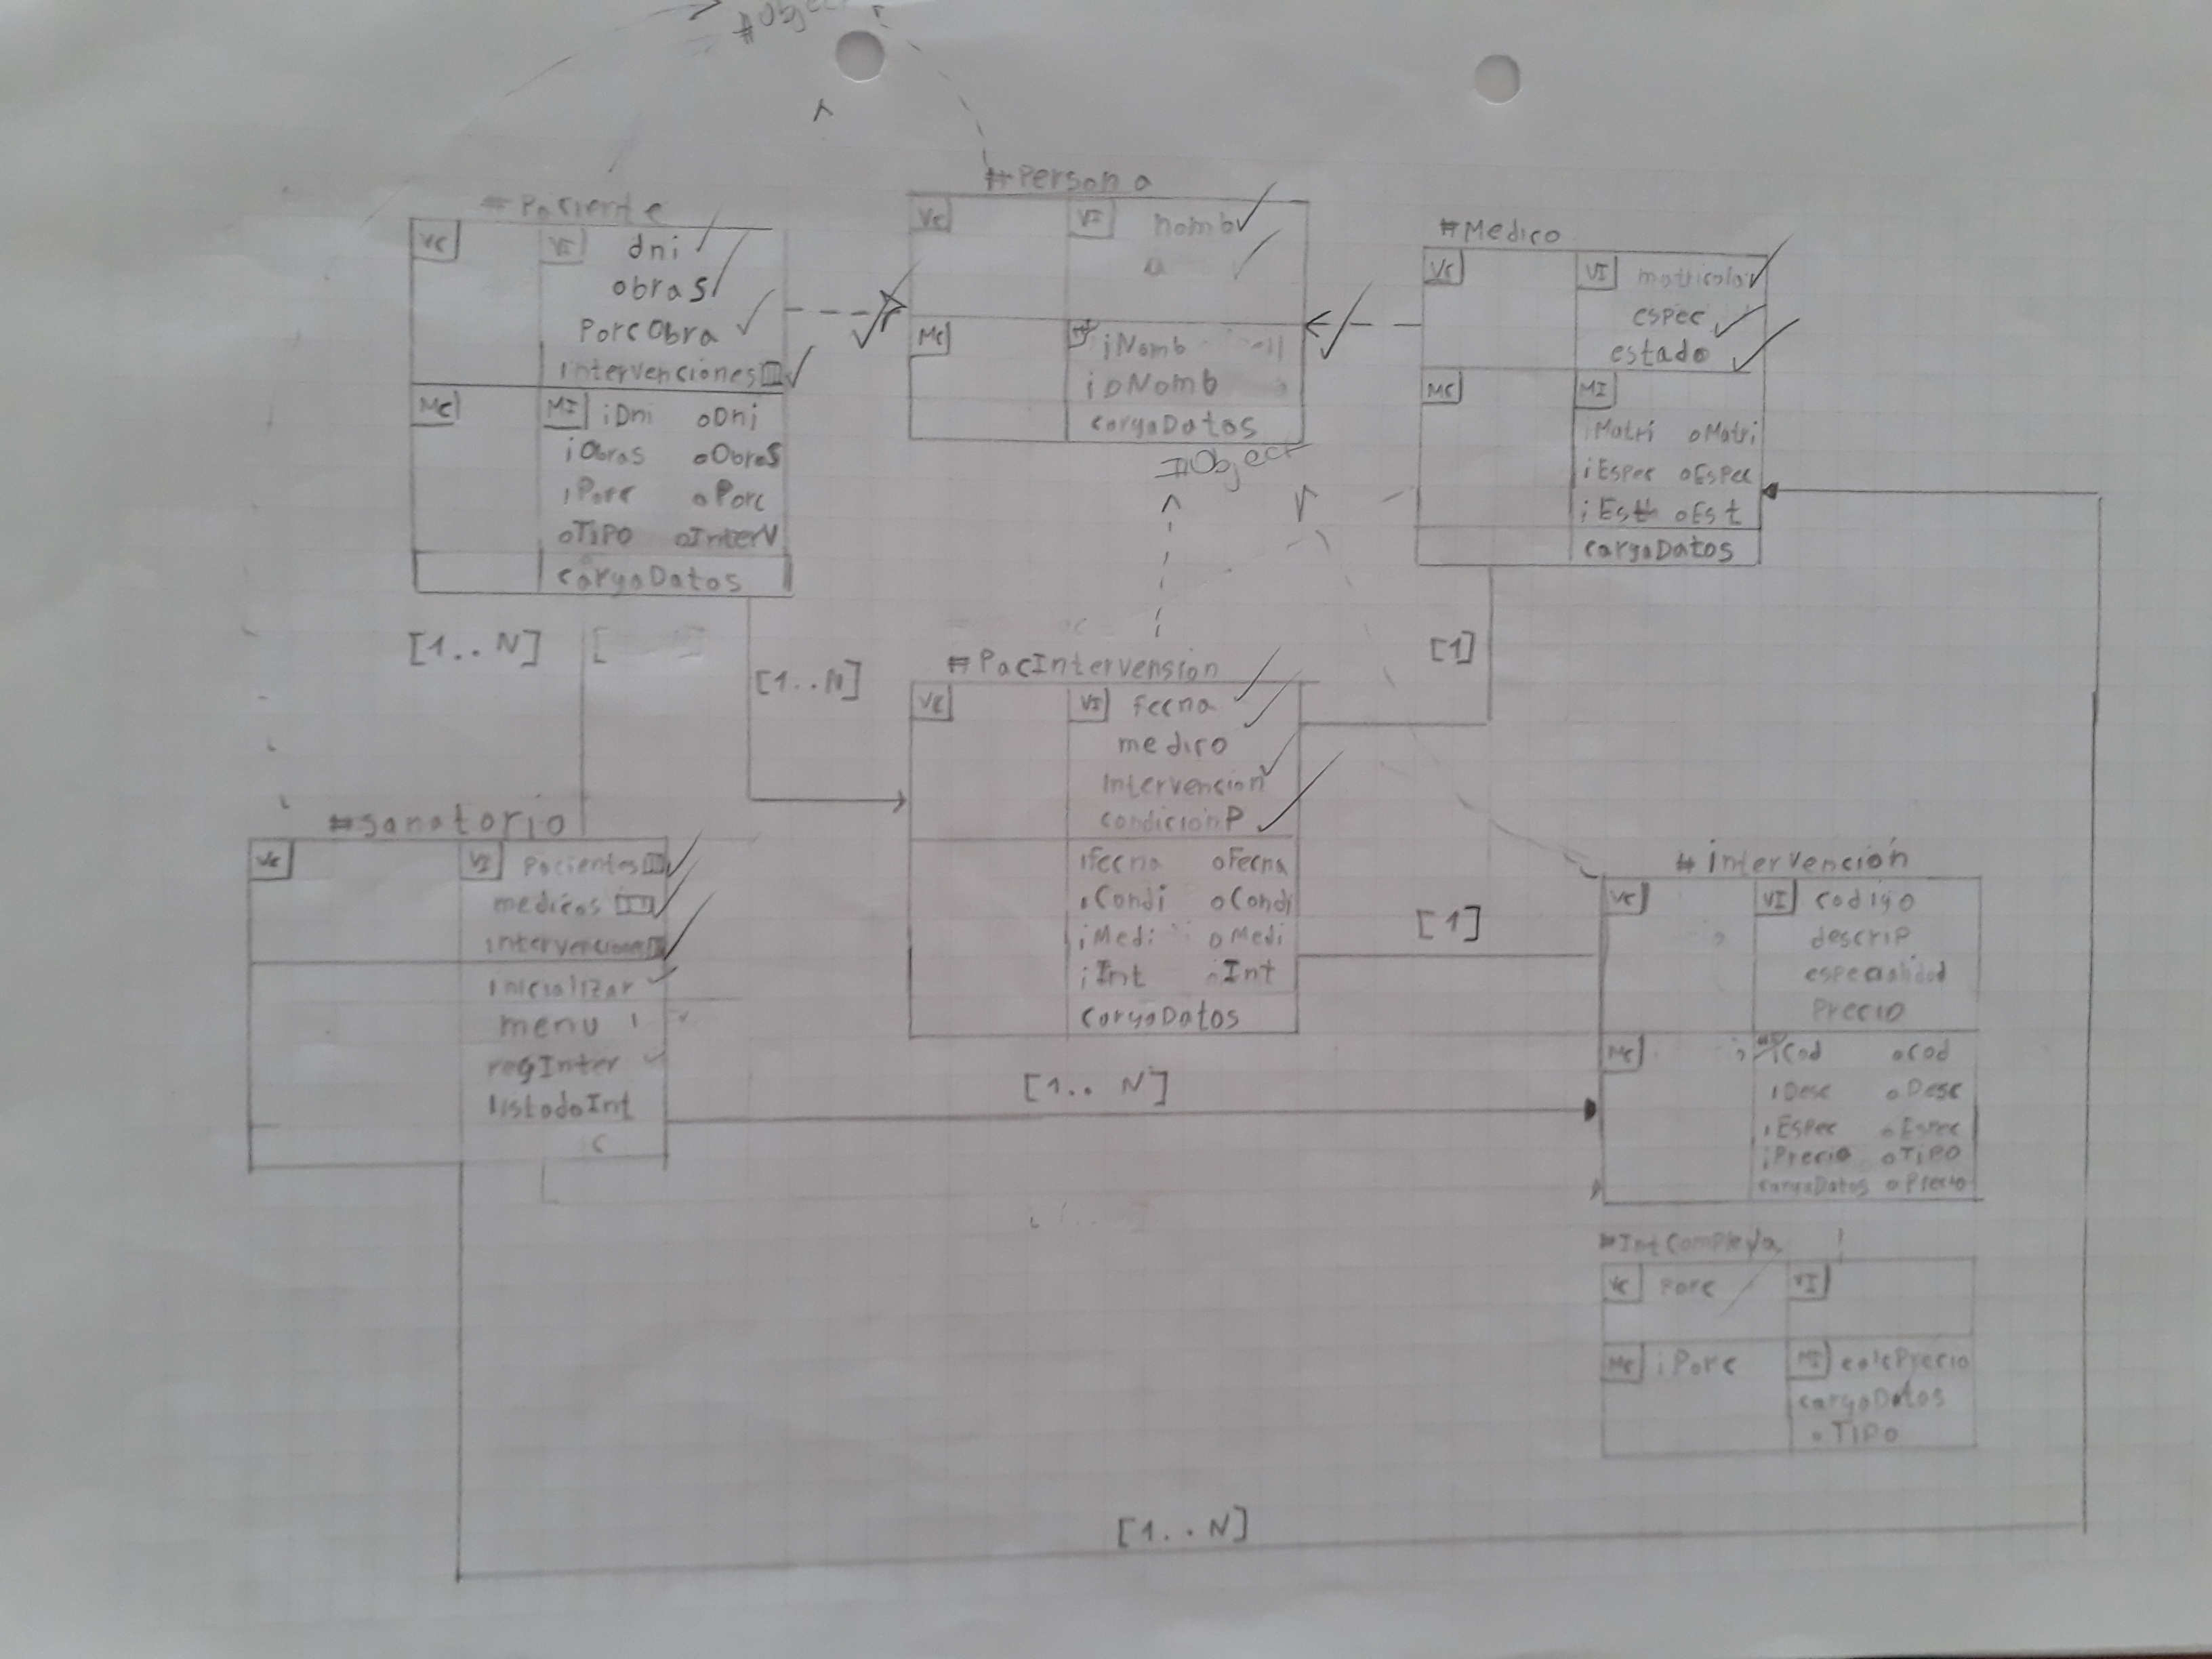 #Object
#Paciente
VC VI dni
obraS
PorcObra
intervenciones
MC MI iDni oDni
iObraS oObraS
iPorc oPorc
oTIPO oInterV
cargaDatos
#Persona
VC VI nomb
MC iNomb
ioNomb
cargaDatos
#Object
#Medico
VC VI matricola
espec
estado
MC MI
iMatri oMatri
iEspec oEsPec
iEst oEst
cargaDatos
[1..N]
[
[1..N]
[1]
#PacIntervension
VC VI fecha
medico
intervencion
condicionP
ifecha oFecha
iCondi oCondi
iMedi oMedi
iInt oInt
cargaDatos
#Sanatorio
VC VI Pacientes
medicos
intervenciones
inicializar
menu
regInter
listadoInt
[1]
[1..N]
#intervención
VC VI codigo
descrip
especialidad
Precio
MC iCod oCod
iDesc oDesc
iEspec oEspec
iPrecio oTIPO
cargaDatos oPrecio
#IntCompleja
VC Porc VI
MC iPorc MI calcPrecio
cargaDatos
oTIPO
[1..N]